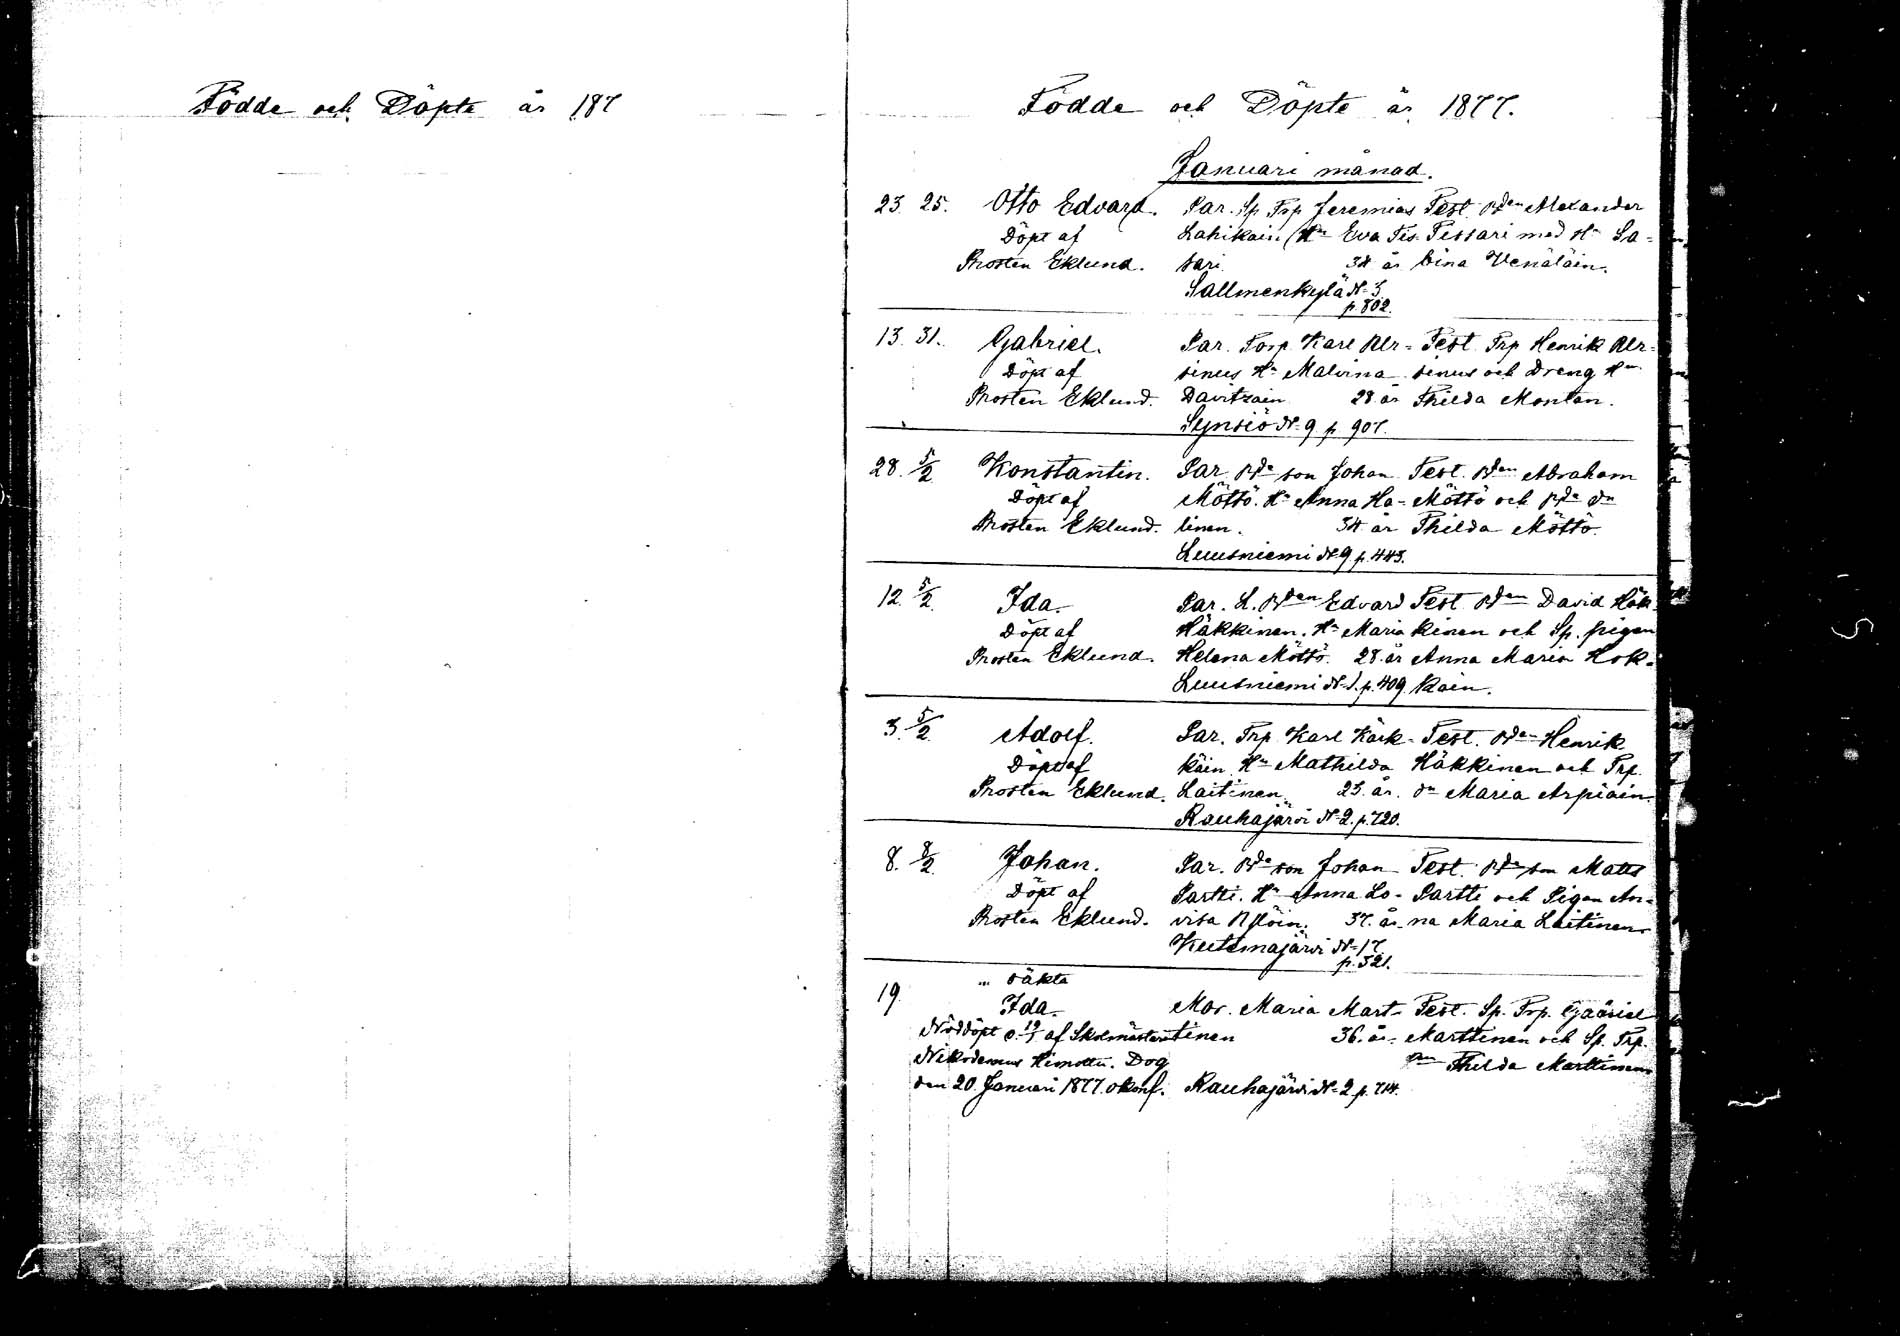 Födde och Döpte år 187
Födde och Döpte år 1877.
Januari månad.
23. 25. Otto Edvard. Par. Sp. Trp Jeremias Test. Bden Alexander
Döpt af Lahikain. Hu Eva Tis- Tissari med Hu Sa-
Prosten Eklund. sari. 34 år bina Venäläin.
Sallmenkylä N=3
p. 802.
13. 31. Gabriel. Par. Torp. Karl Alr- Test. Trp Henrik Alr-
Döpt af sinus Hu Malvina sinus och Dreng Hu
Prosten Eklund. Davitzain 28 år Thilda Montan.
Synsiö N=9 p. 907.
28. 5/2 Konstantin. Par. Bde son Johan Test. Bden Abraham
Döpt af Möttö. Hu Anna Ha- Möttö och Bde du
Prosten Eklund. linen. 34 år Thilda Möttö.
Luusniemi N=9 p. 443.
12. 5/2 Ida. Par. L. Bden Edvard Test. Bden David Häk-
Döpt af Häkkinen. Hu Maria kinen och Sp. pigan
Prosten Eklund. Helena Möttö. 28 år Anna Maria Hok-
Luusniemi N=1. p. 409. kain.
3. 5/2 Adolf. Par. Trp Karl Kärk- Test. Bden Henrik
Döpt af käin Hu Mathilda Häkkinen och Trp.
Prosten Eklund. Laitinen 23. år. du Maria Arpiain.
Rauhajärvi N=2. p. 720.
8. 8/2 Johan. Par. Bde son Johan Test. Bde son Matts
Döpt af Partti. Hu Anna Lo- Partti och Pigan An-
Prosten Eklund. visa 37. år na Maria Laitinen
Kutemajärvi N=17.
p. 521.
oäkta
19 Ida. Mor. Maria Mart- Test. Sp. Trp. Gabriel
Nöddöpt d. 19/1 af Skolmästare tinen 36. år. Marttinen och Sp. Trp.
Nikodemus Himottu. Dog Thilda Marttinen
den 20 Januari 1877. okonf. Rauhajärvi N=2 p. 714.